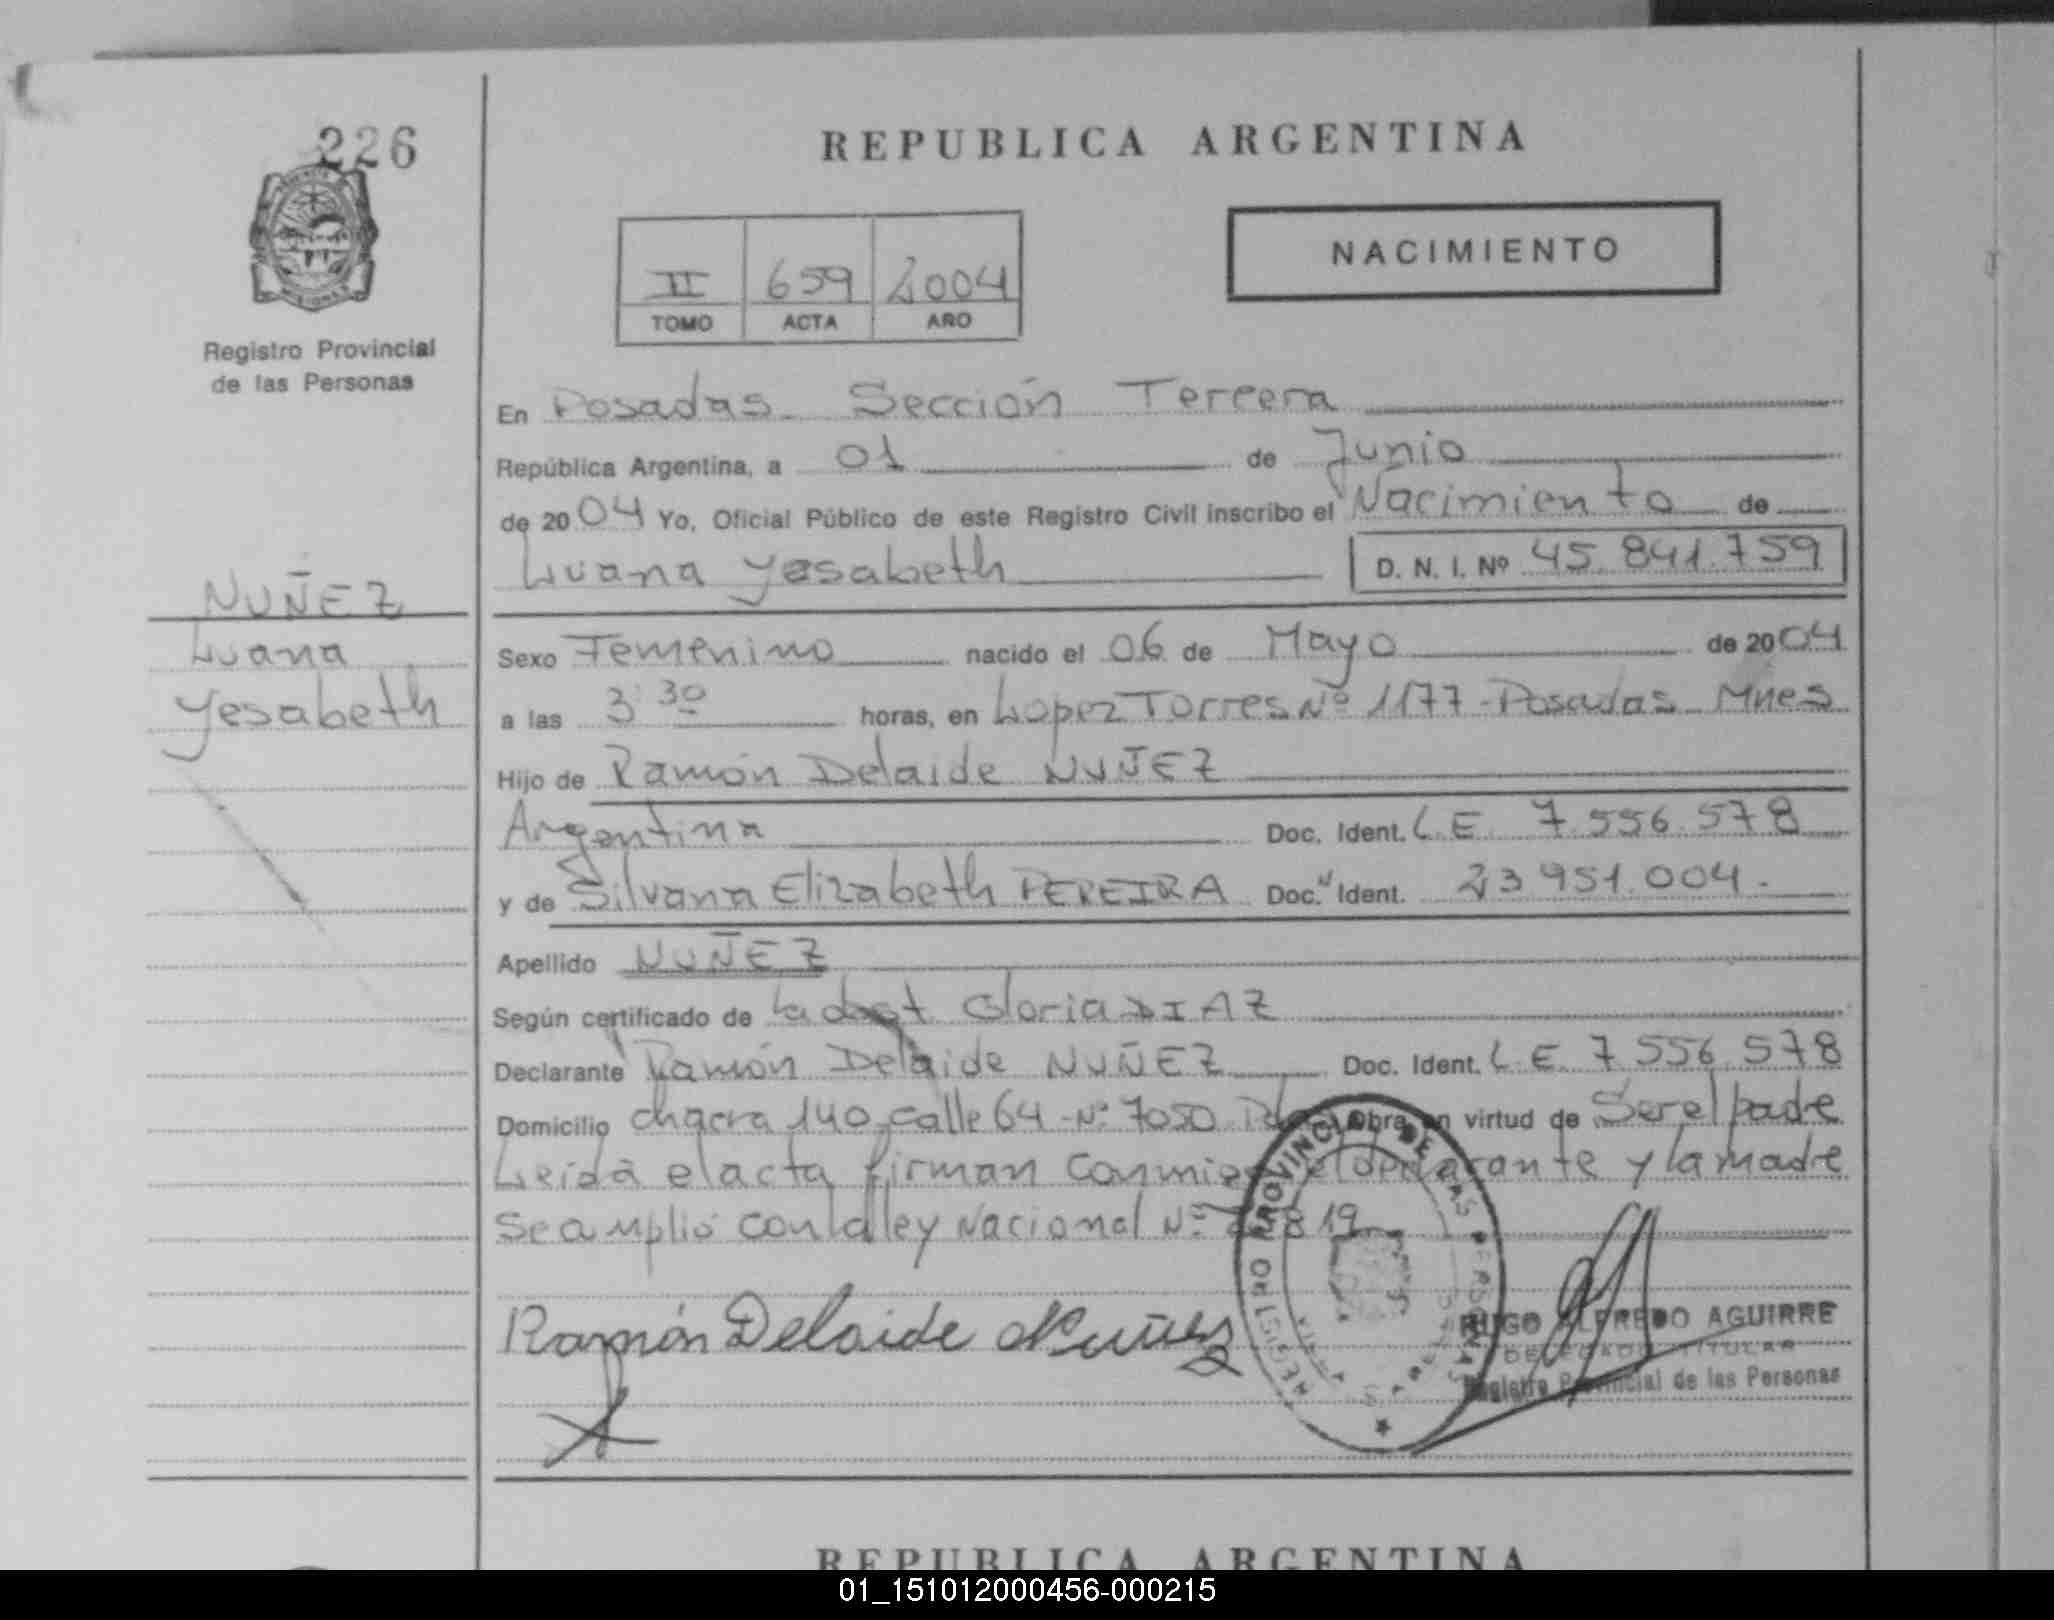 226
REPUBLICA ARGENTINA
NACIMIENTO
II 659 2004
TOMO ACTA AÑO
Registro Provincial
de las Personas
En Posadas Sección Tercera
República Argentina, a 01 de Junio
de 2004 Yo, Oficial Público de este Registro Civil inscribo el Nacimiento de
Luana Yesabeth D. N. I. Nº 45.841.759
NUÑEZ
Luana
Yesabeth
Sexo Femenino nacido el 06 de Mayo de 2004
a las 3:30 horas, en Lopez Torres Nº 1177 - Posadas Mnes
Hijo de Ramón Delaide NUÑEZ
Argentina Doc. Ident. L.E. 7.556.578
y de Silvana Elizabeth PEREIRA Doc. Ident. 23.951.004.
Apellido NUÑEZ
Según certificado de la Gloria DIAZ
Declarante Ramón Delaide NUÑEZ Doc. Ident. L.E. 7.556.578
Domicilio chacra 140 calle 64 - Nº 7050 Obra en virtud de Ser el padre
Leída el acta firman conmigo el declarante y la madre
Se amplió con la ley Nacional Nº 819
Ramón Delaide Nuñez
REGISTRO PROVINCIAL DE LAS PERSONAS
HUGO ALFREDO AGUIRRE
DELEGADO TITULAR
Registro Provincial de las Personas
REPUBLICA ARGENTINA
01_151012000456-000215